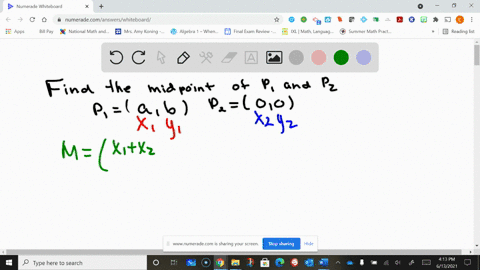 Numerade Whiteboard
numerade.com/answers/whiteboard/
Apps
Bill Pay
Mrs. Amy Koning -
Algebra 1 - Wham
Classes
Desmos
IXL | Math, Languag
Summer Math Practi
Reading list
Find the midpoint of P₁ and P₂
P₁=(a,b) P₂=(0,0)
x₁ y₁ x₂ y₂
M=(x₁+x₂
www.numerade.com is sharing your screen.
Stop sharing
Hide
Type here to search
4:13 PM
6/13/2021